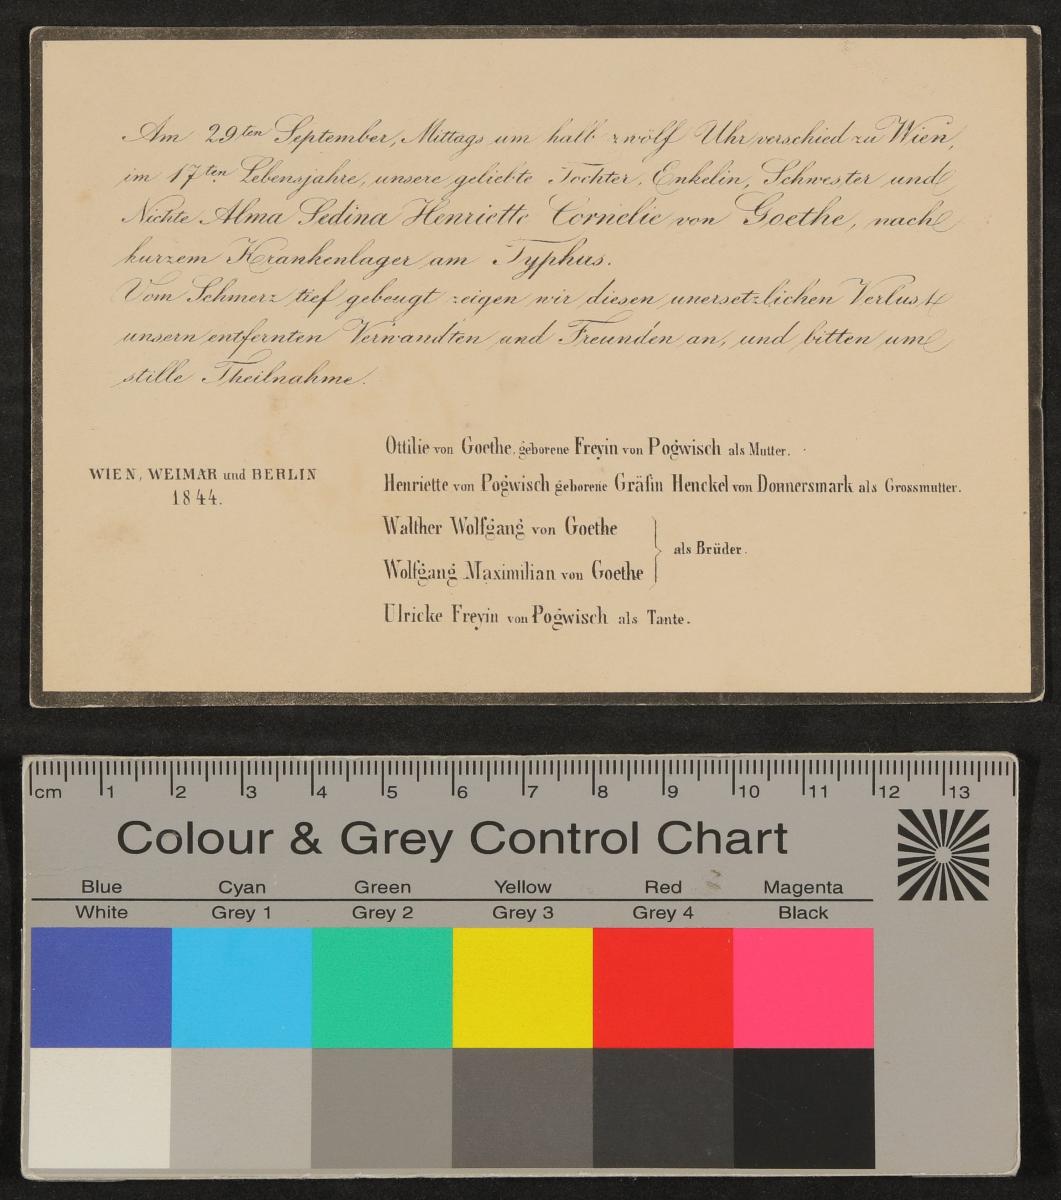 Am 29ten September, Mittags um halb zwölf Uhr verschied zu Wien,
im 17ten Lebensjahre, unsere geliebte Tochter, Enkelin, Schwester und
Nichte Alma Sedina Henriette Cornelie von Goethe, nach
kurzem Krankenlager am Typhus.
Vom Schmerz tief gebeugt zeigen wir diesen unersetzlichen Verlust
unsern entfernten Verwandten und Freunden an, und bitten um
stille Theilnahme.
Ottilie von Goethe, geborene Freyin von Pogwisch als Mutter.
WIEN, WEIMAR und BERLIN
1844.
Henriette von Pogwisch geborene Gräfin Henckel von Donnersmark als Grossmutter.
Walther Wolfgang von Goethe
Wolfgang Maximilian von Goethe
als Brüder.
Ulricke Freyin von Pogwisch als Tante.
cm 1 2 3 4 5 6 7 8 9 10 11 12 13
Colour & Grey Control Chart
Blue Cyan Green Yellow Red Magenta
White Grey 1 Grey 2 Grey 3 Grey 4 Black